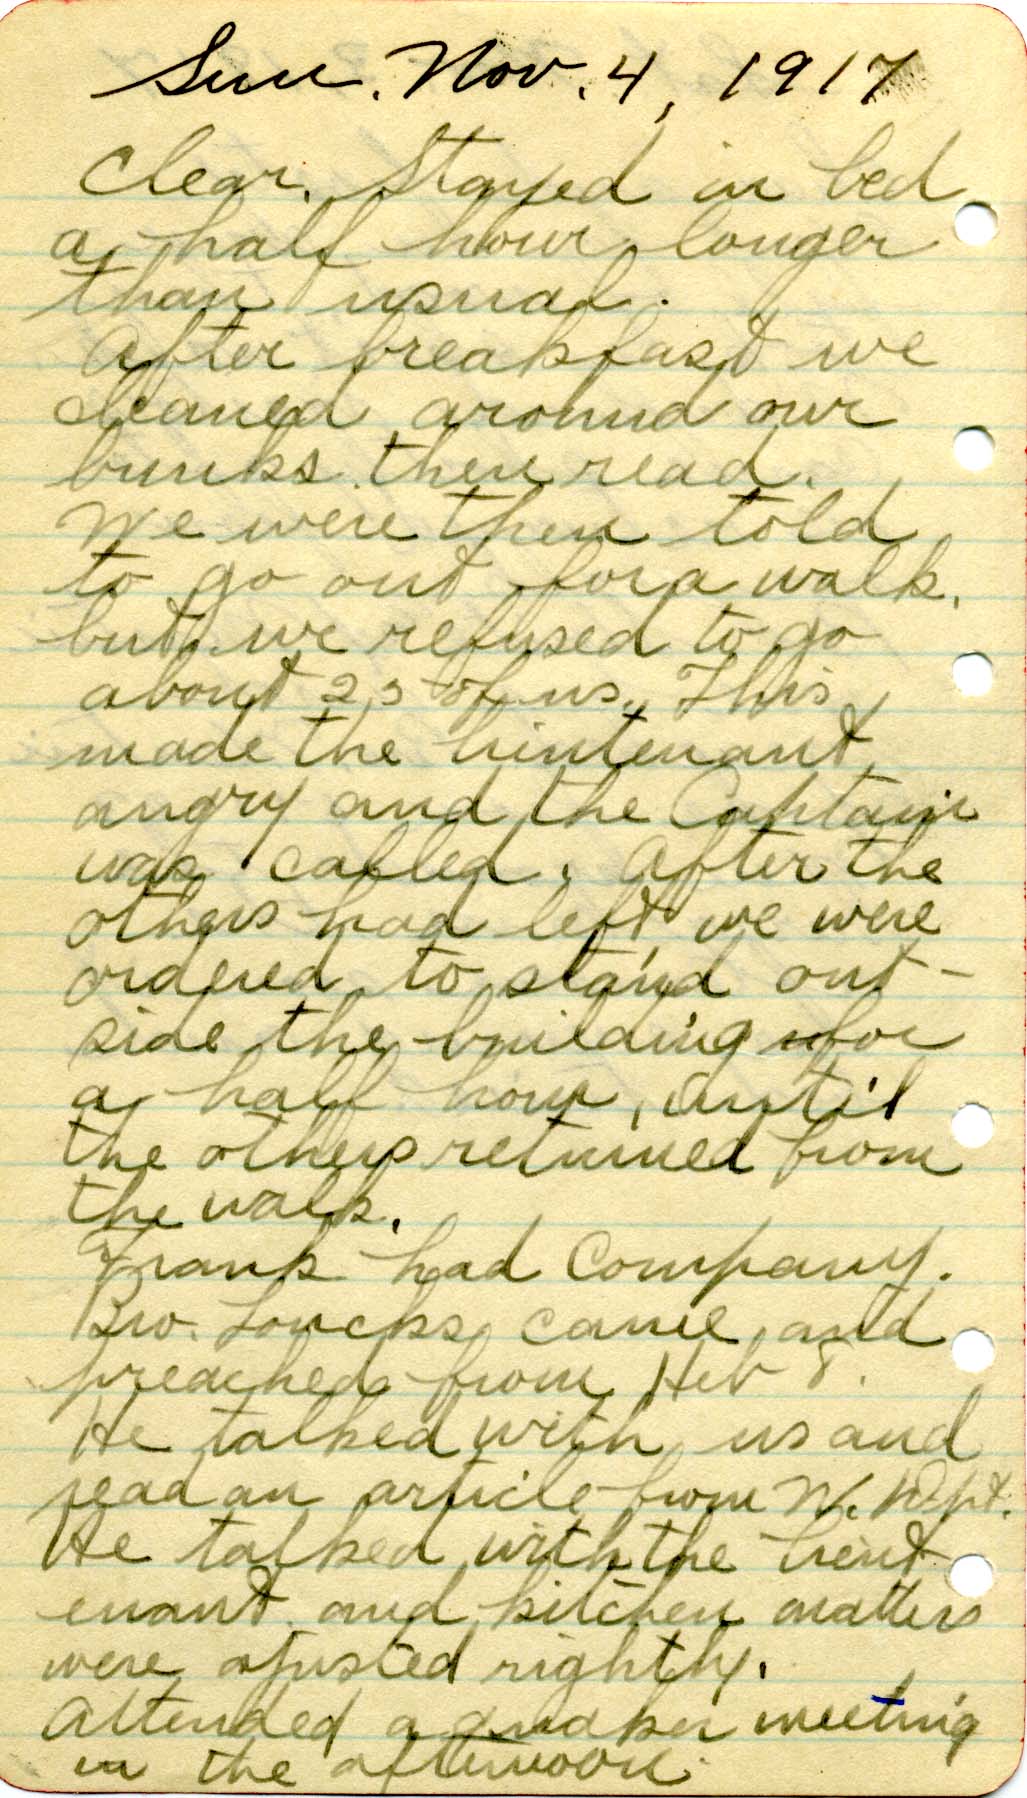 Sun. Nov. 4, 1917
Clear. Stayed in bed
a half hour longer
than usual.
After breakfast we
cleaned around our
bunks then read.
We were then told
to go out for a walk,
but we refused to go
about 25 of us. This
made the lieutenant
angry and the Captain
was called. After the
others had left we were
ordered to stand out-
side the building for
a half hour, until
the others returned from
the walk.
Frank had Company.
Bro. Loucks came and
preached from Heb 8.
He talked with us and
read an article from W. Dept.
He talked with the lieut-
enant and kitchen matters
were ajusted rightly.
Attended a quaker meeting
in the afternoon.